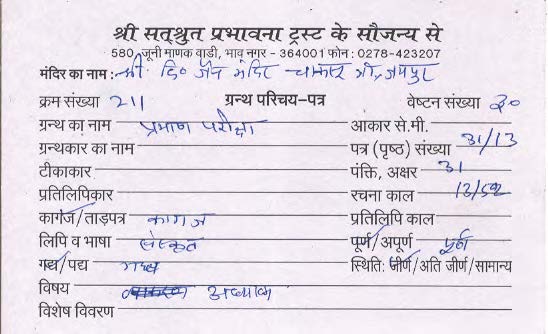 श्री सत्श्रुत प्रभावना ट्रस्ट के सौजन्य से
580, जूनी माणक वाडी, भाव नगर - 364001 फोन : 0278-423207
मंदिर का नाम : श्री दि० जैन मंदिर जयपुर
क्रम संख्या 211 ग्रन्थ परिचय-पत्र वेष्टन संख्या ३०
ग्रन्थ का नाम प्रमाण परीक्षा आकार से.मी.
ग्रन्थकार का नाम पत्र (पृष्ठ) संख्या 31/13
टीकाकार पंक्ति, अक्षर 31
प्रतिलिपिकार रचना काल 13/52
कागज/ताड़पत्र कागज प्रतिलिपि काल
लिपि व भाषा संस्कृत पूर्ण/अपूर्ण पूर्ण
गद्य/पद्य गद्य स्थिति: जीर्ण/अति जीर्ण/सामान्य
विषय
विशेष विवरण